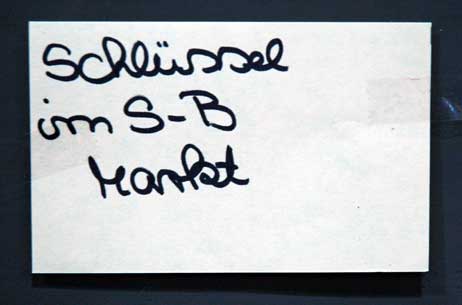 Schlüssel
im S-B
Markt